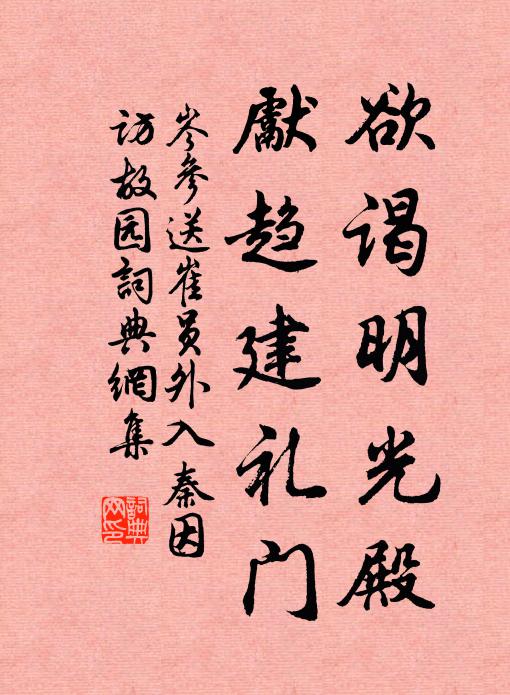 欲谒明光殿
獻趋建礼门
岑參送崔员外入秦因
访故园詞典網集
詞典
网印